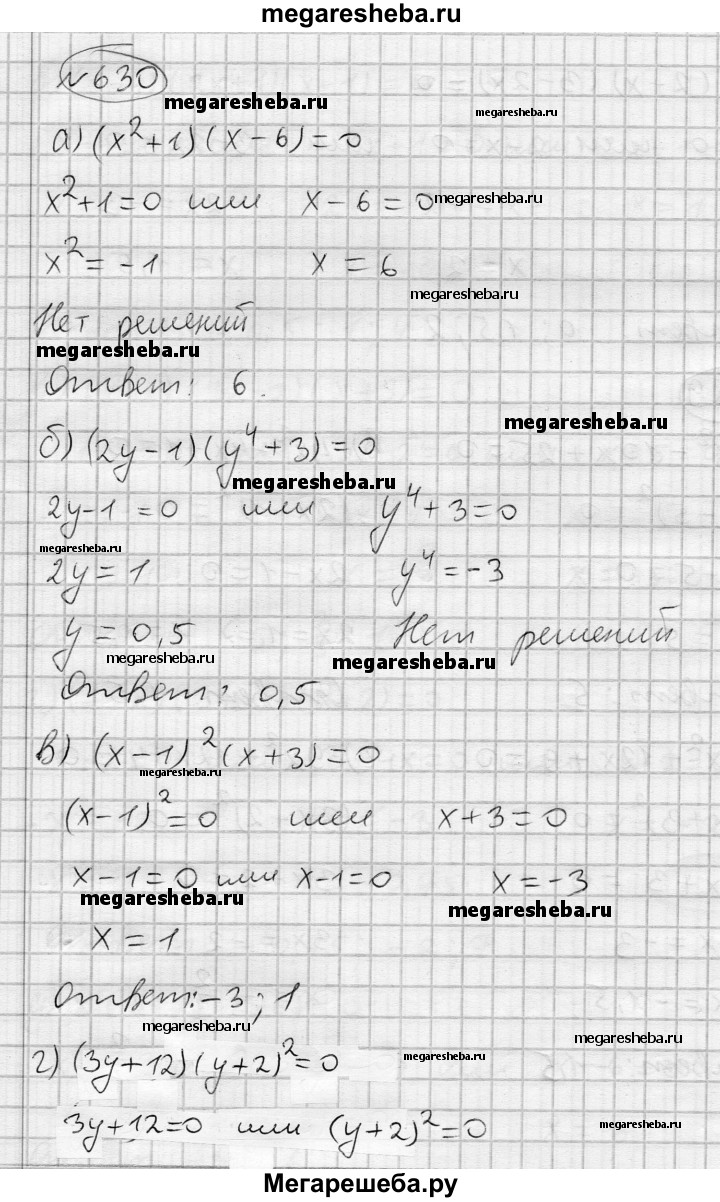 megaresheba.ru
№630
megaresheba.ru
megaresheba.ru
а) (x²+1)(x-6)=0
x²+1=0 или x-6=0
megaresheba.ru
x²=-1 x=6
megaresheba.ru
Нет решений
megaresheba.ru
Ответ: 6.
megaresheba.ru
б) (2y-1)(y⁴+3)=0
megaresheba.ru
2y-1=0 или y⁴+3=0
megaresheba.ru
2y=1 y⁴=-3
y=0,5 Нет решений
megaresheba.ru
megaresheba.ru
Ответ: 0,5
в) (x-1)²(x+3)=0
megaresheba.ru
(x-1)²=0 или x+3=0
x-1=0 или x-1=0 x=-3
megaresheba.ru
megaresheba.ru
x=1
Ответ: -3; 1
megaresheba.ru
megaresheba.ru
г) (3y+12)(y+2)²=0
megaresheba.ru
3y+12=0 или (y+2)²=0
megaresheba.ru
Мегарешеба.ру